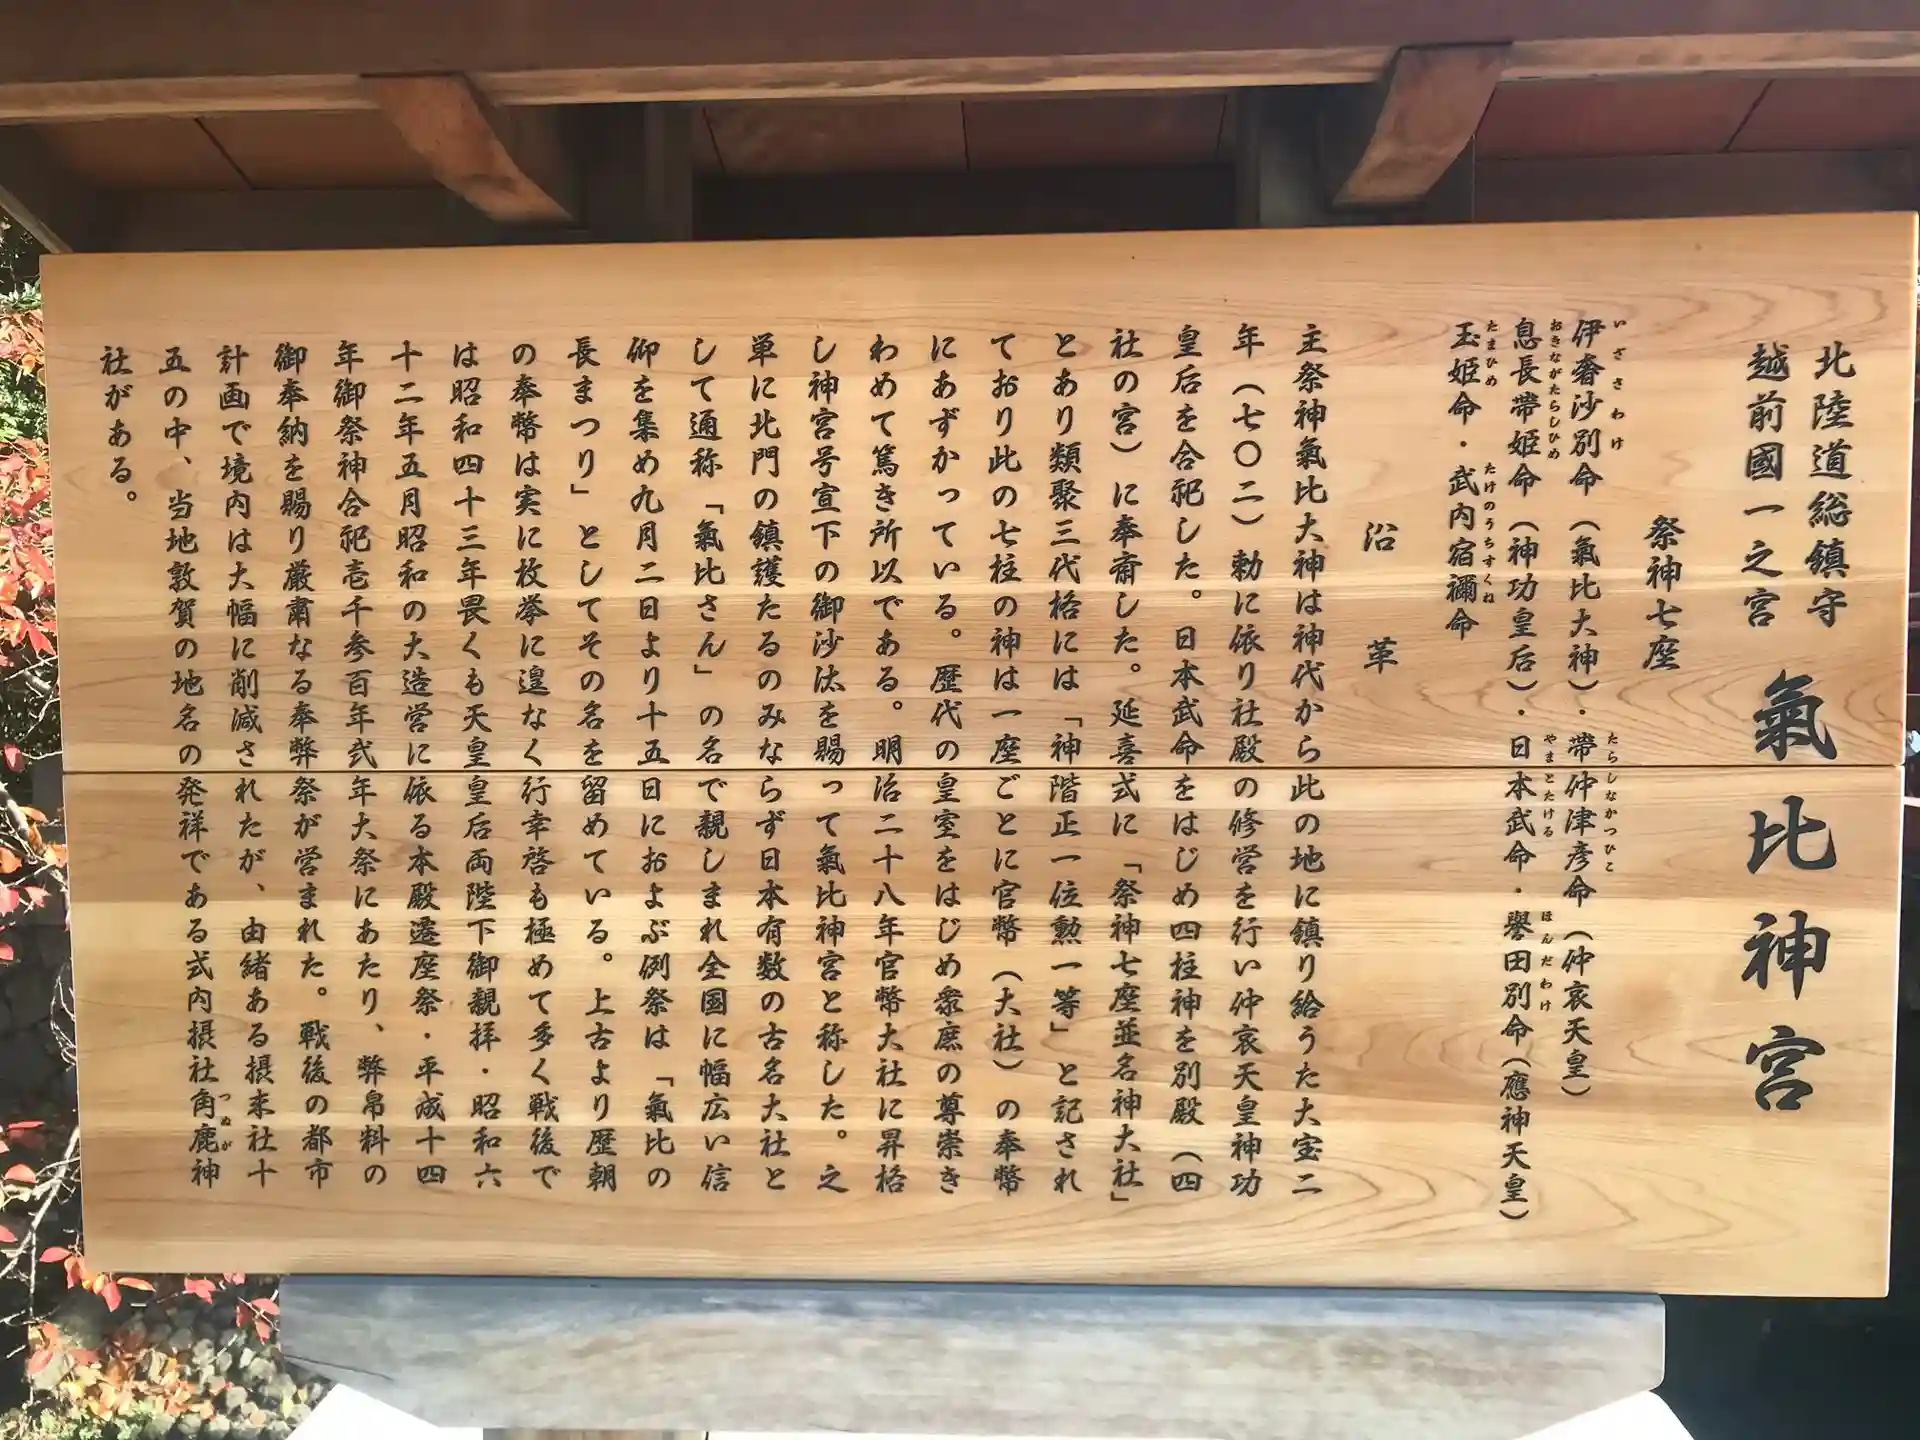 北陸道総鎮守
越前國一之宮
氣比神宮
祭神七座
伊奢沙別命（氣比大神）・帶仲津彦命（仲哀天皇）
いざさわけ
たらしなかつひこ
息長帶姫命（神功皇后）・日本武命・譽田別命（應神天皇）
おきながたらしひめ
やまとたける
ほんだわけ
玉姫命・武内宿禰命
たまひめ
たけのうちすくね
沿革
主祭神氣比大神は神代から此の地に鎮り給うた大宝二
年（七〇二）勅に依り社殿の修営を行い仲哀天皇神功
皇后を合祀した。日本武命をはじめ四柱神を別殿（四
社の宮）に奉斎した。延喜式に「祭神七座並名神大社」
とあり類聚三代格には「神階正一位勲一等」と記され
ており此の七柱の神は一座ごとに官幣（大社）の奉幣
にあずかっている。歴代の皇室をはじめ衆庶の尊崇き
わめて篤き所以である。明治二十八年官幣大社に昇格
し神宮号宣下の御沙汰を賜って氣比神宮と称した。之
単に北門の鎮護たるのみならず日本有数の古名大社と
して通称「氣比さん」の名で親しまれ全国に幅広い信
仰を集め九月二日より十五日におよぶ例祭は「氣比の
長まつり」としてその名を留めている。上古より歴朝
の奉幣は実に枚挙に遑なく行幸啓も極めて多く戦後で
は昭和四十三年畏くも天皇皇后両陛下御親拝・昭和六
十二年五月昭和の大造営に依る本殿遷座祭・平成十四
年御祭神合祀壱千参百年弐年大祭にあたり、弊帛料の
御奉納を賜り厳粛なる奉弊祭が営まれた。戦後の都市
計画で境内は大幅に削減されたが、由緒ある摂末社十
五の中、当地敦賀の地名の発祥である式内摂社角鹿神
つぬが
社がある。